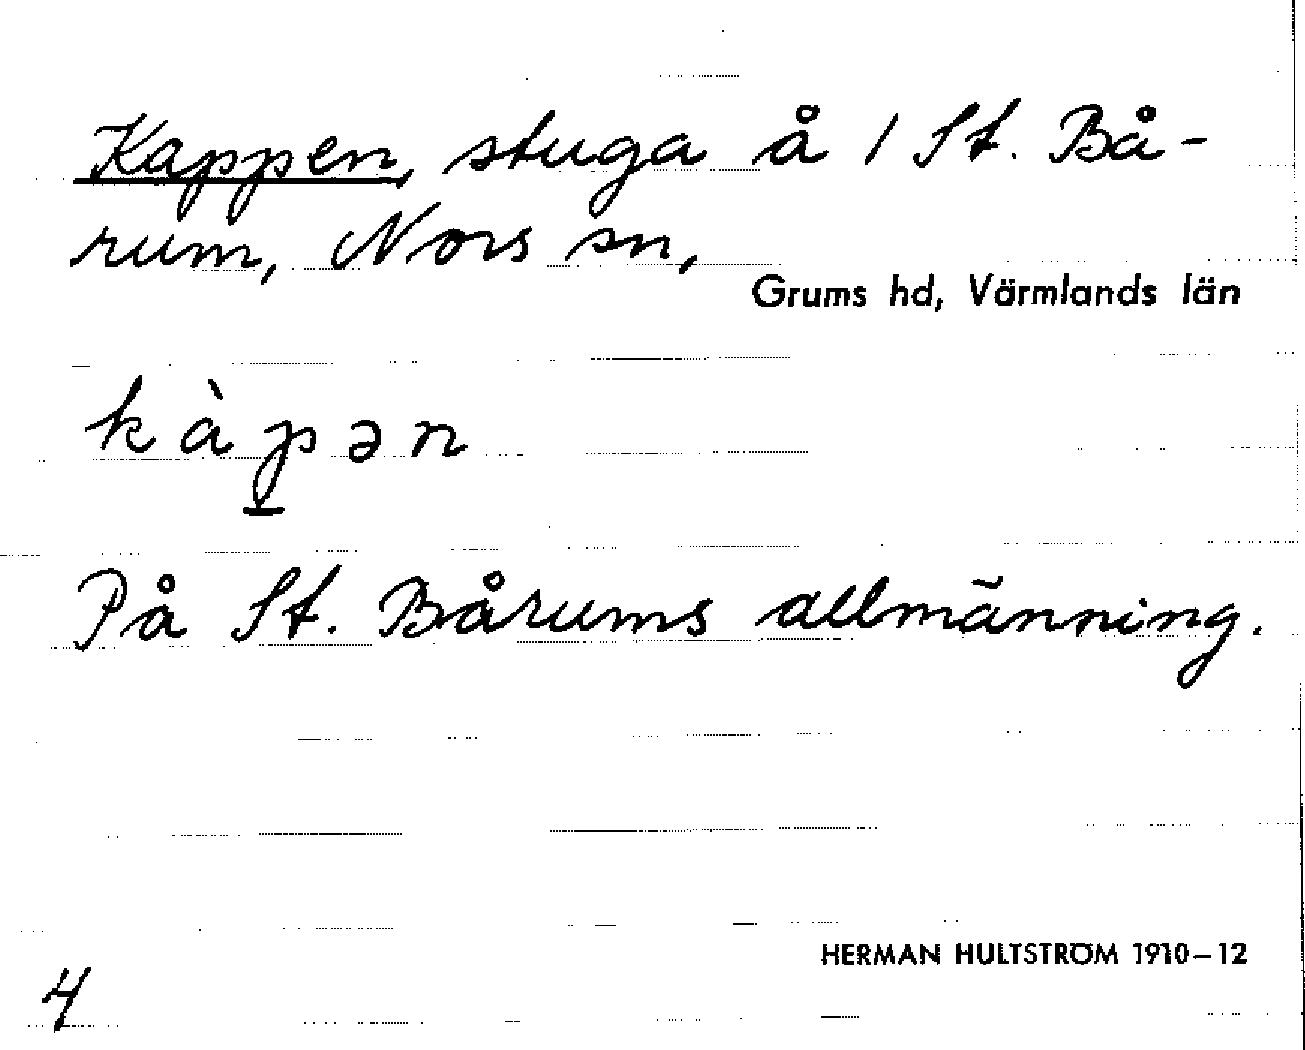 Kappen, stuga å 1 St. Bå-
rum, Nors sn,
Grums hd, Värmlands län
kàp̱ən
På St. Bårums allmänning.
HERMAN HULTSTRÖM 1910–12
4